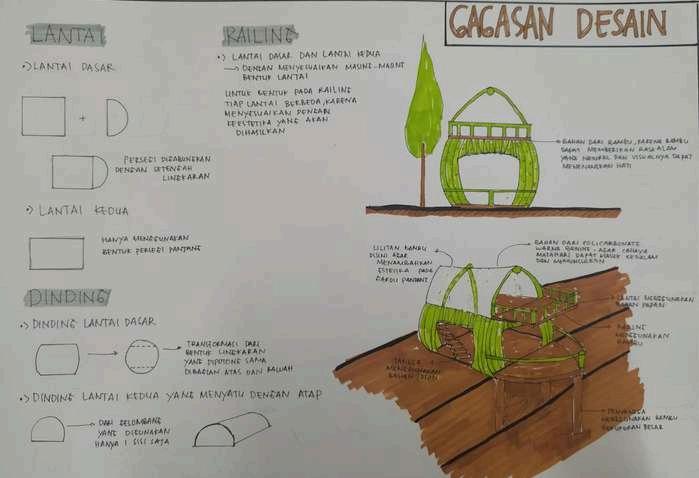 GAGASAN DESAIN
LANTAI
LANTAI DASAR
+
PERSEGI DIGABUNGKAN
DENGAN SETENGAH
LINGKARAN
LANTAI KEDUA
HANYA MENGGUNAKAN
BENTUK PERSEGI PANJANG
DINDING
DINDING LANTAI DASAR
TRANSFORMASI DARI
BENTUK LINGKARAN
YANG DIPOTONG SAMA
DIBAGIAN ATAS DAN BAWAH
DINDING LANTAI KEDUA YANG MENYATU DENGAN ATAP
DARI GELOMBANG
YANG DIGUNAKAN
HANYA 1 SISI SAJA
RAILING
LANTAI DASAR DAN LANTAI KEDUA
DENGAN MENYESUAIKAN MASING-MASING
BENTUK LANTAI
UNTUK BENTUK PADA RAILING
TIAP LANTAI BERBEDA, KARENA
MENYESUAIKAN DENGAN
ESTETIKA YANG AKAN
DIHASILKAN
BAHAN DARI BAMBU, KARENA BAMBU
DAPAT MEMBERIKAN RASA ALAM
YANG NATURAL DAN VISUALNYA DAPAT
MENENANGKAN HATI
LILITAN BAMBU
DISINI AGAR
MENAMBAHKAN
ESTETIKA PADA
BAHAN DARI POLICARBONATE
WARNA BENING AGAR CAHAYA
MATAHARI DAPAT MASUK KEDALAM
DAN
LANTAI MENGGUNAKAN
BAHAN PAPAN
RAILING
MENGGUNAKAN
BAMBU
TANGGA
MENGGUNAKAN
BAHAN
PENYANGGA
MENGGUNAKAN BAMBU
BESAR